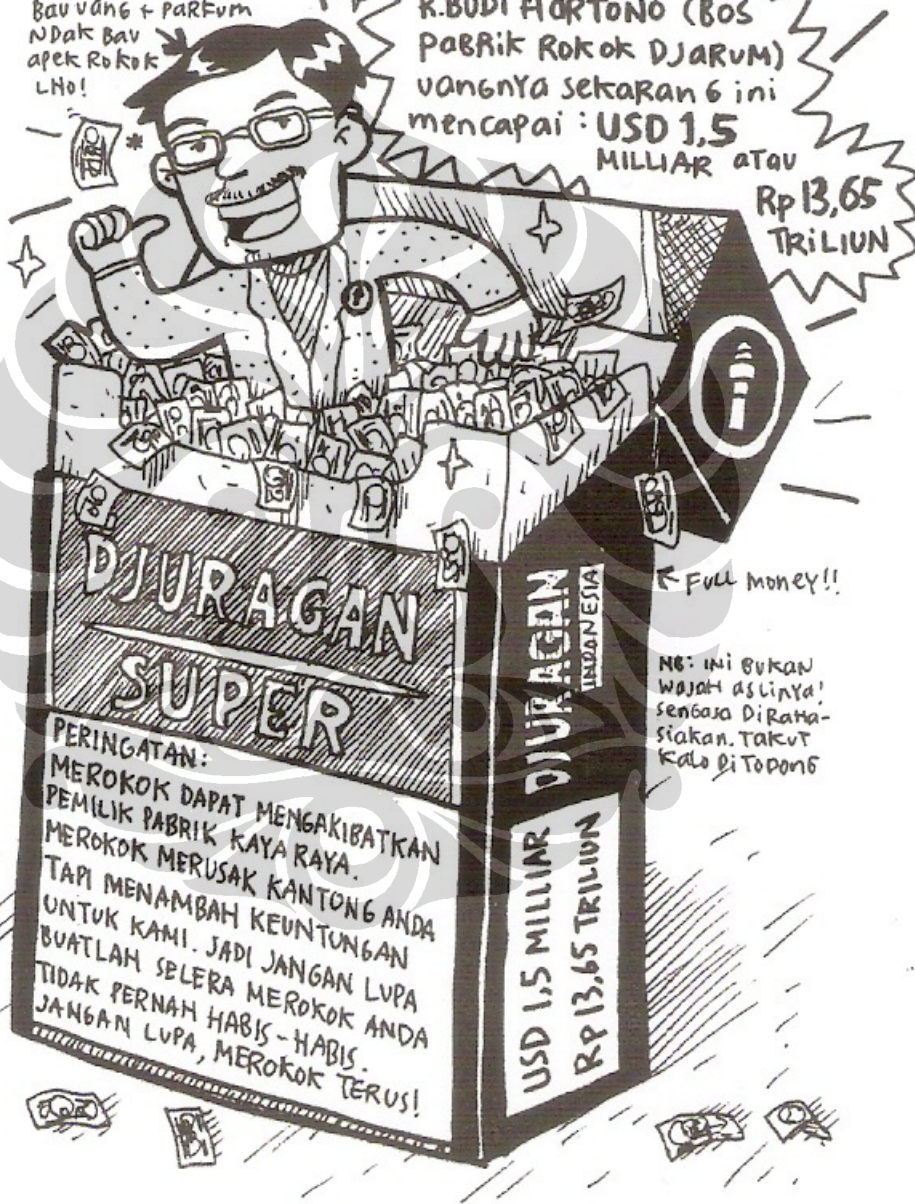 BAU UANG + PARFUM
NDAK BAU
APEK ROKOK
LHO!
R.BUDI HARTONO (BOS
PABRIK ROKOK DJARUM)
UANGNYA SEKARANG INI
MENCAPAI : USD 1,5
MILLIAR ATAU
Rp 13,65
TRILIUN
DJURAGAN
SUPER
PERINGATAN:
MEROKOK DAPAT MENGAKIBATKAN
PEMILIK PABRIK KAYA RAYA.
MEROKOK MERUSAK KANTONG ANDA
TAPI MENAMBAH KEUNTUNGAN
UNTUK KAMI. JADI JANGAN LUPA
BUATLAH SELERA MEROKOK ANDA
TIDAK PERNAH HABIS-HABIS.
JANGAN LUPA, MEROKOK TERUS!
DJURAGAN
INDONESIA
USD 1,5 MILLIAR
Rp 13,65 TRILIUN
FULL MONEY!!
NB: INI BUKAN
WAJAH ASLINYA!
SENGAJA DIRAHA-
SIAKAN. TAKUT
KALO DITODONG